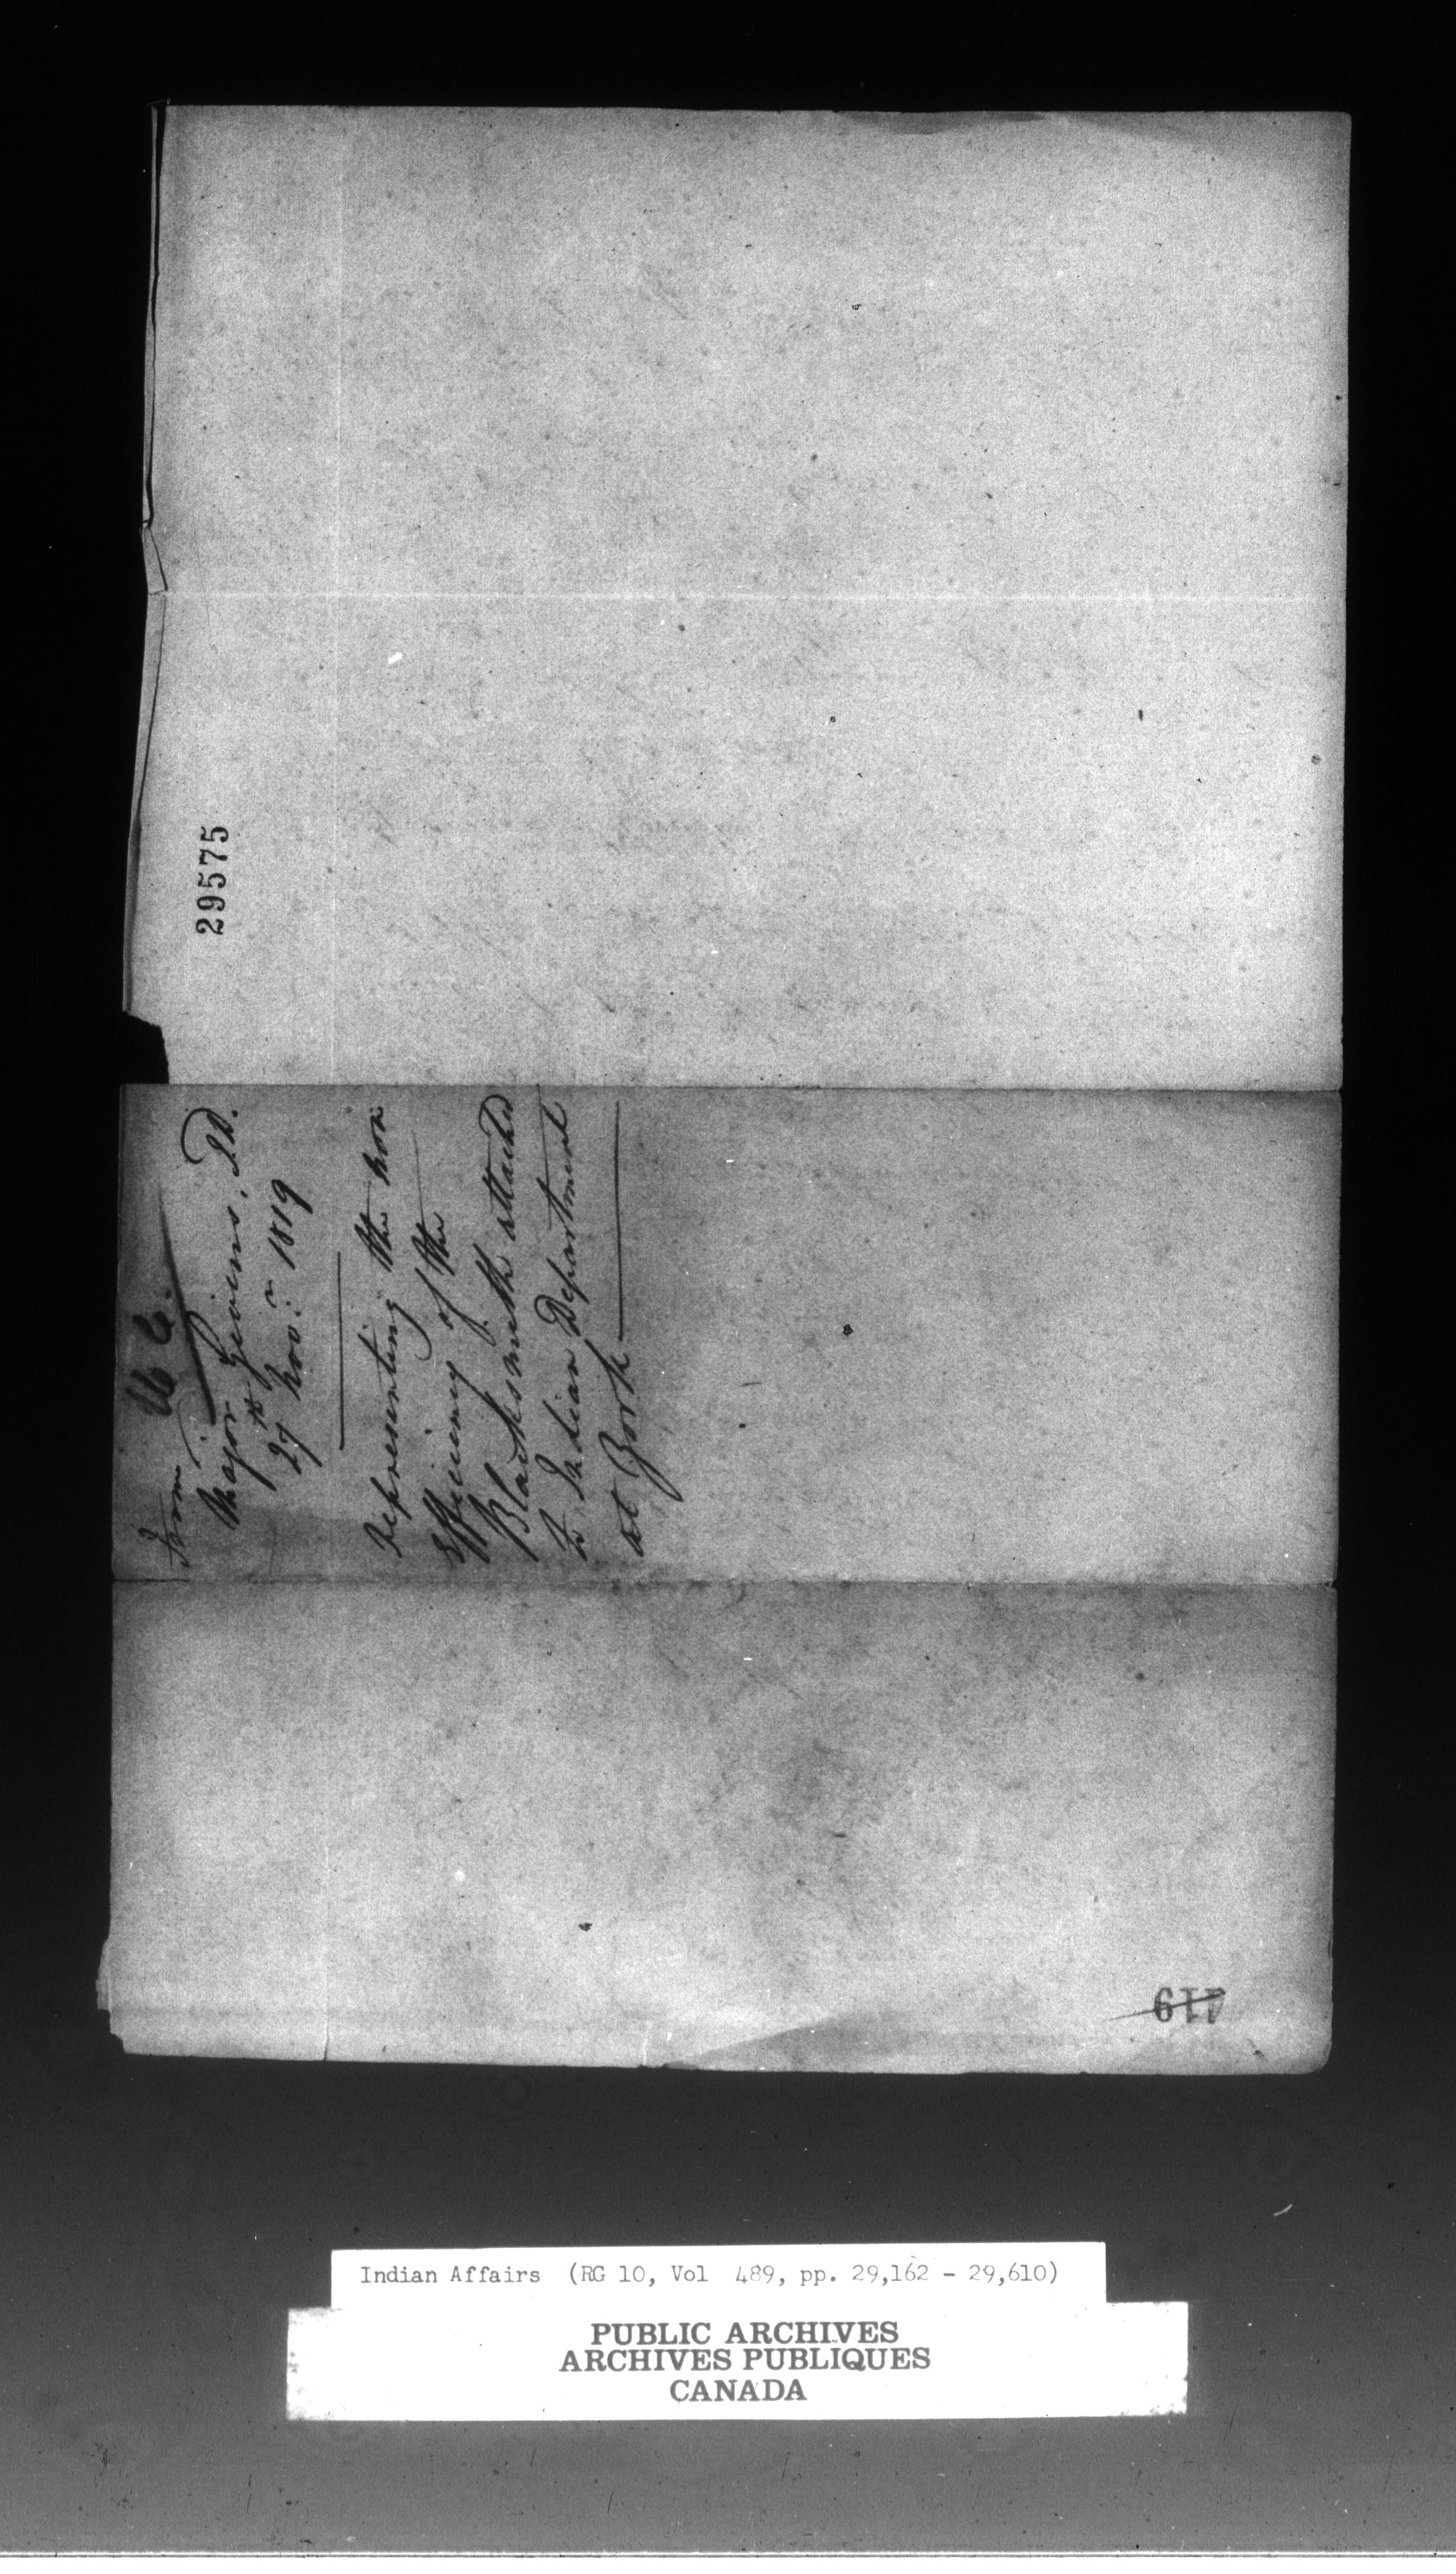 29575
U C.
From
Major Givins, I.D.
27th Novr. 1819
representing the non
efficiency of the
Blacksmith attached
to Indian Department
at York
119
Indian Affairs (RG 10, Vol 489, pp. 29,162 - 29,610)
PUBLIC ARCHIVES
ARCHIVES PUBLIQUES
CANADA